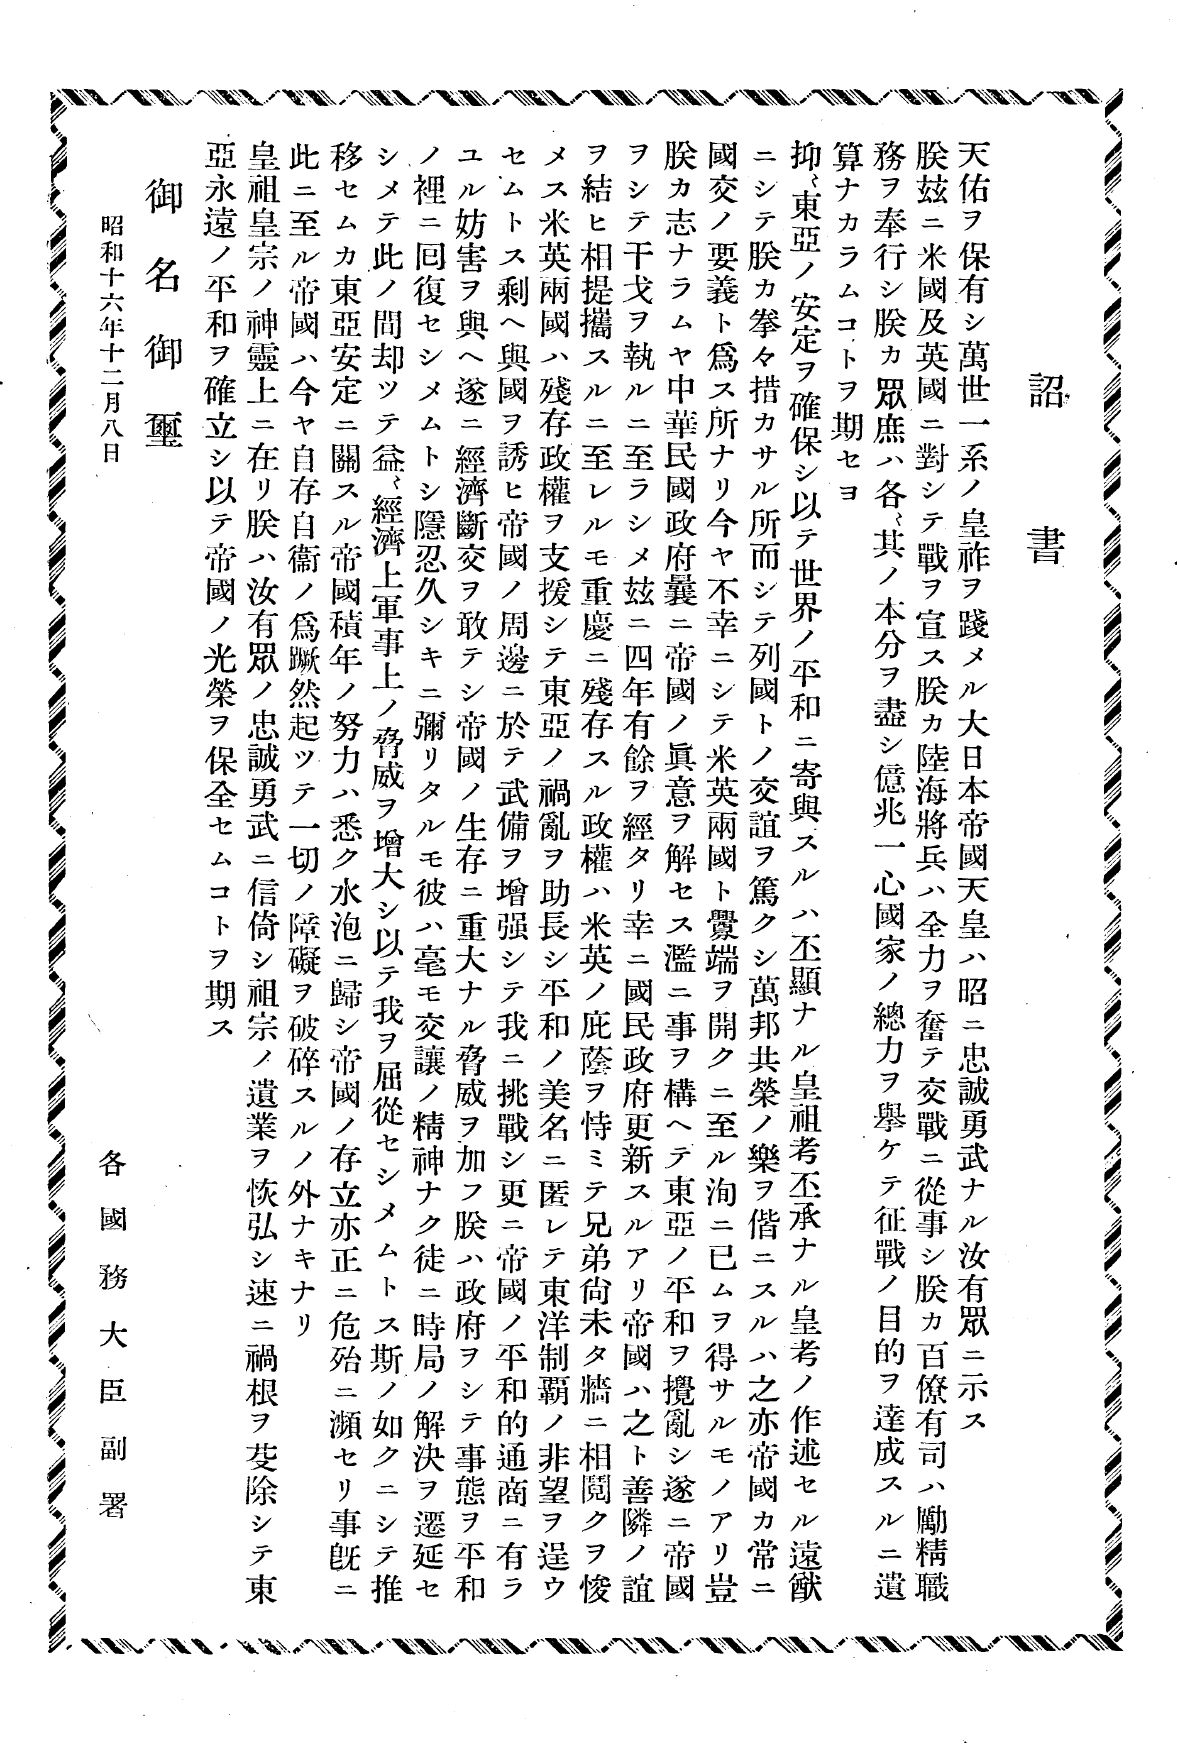 詔書
天佑ヲ保有シ萬世一系ノ皇祚ヲ踐メル大日本帝國天皇ハ昭ニ忠誠勇武ナル汝有眾ニ示ス
朕玆ニ米國及英國ニ對シテ戰ヲ宣ス朕カ陸海將兵ハ全力ヲ奮テ交戰ニ從事シ朕カ百僚有司ハ勵精職
務ヲ奉行シ朕カ眾庶ハ各〻其ノ本分ヲ盡シ億兆一心國家ノ總力ヲ擧ケテ征戰ノ目的ヲ達成スルニ遺
算ナカラムコトヲ期セヨ
抑〻東亞ノ安定ヲ確保シ以テ世界ノ平和ニ寄與スルハ丕顯ナル皇祖考丕承ナル皇考ノ作述セル遠猷
ニシテ朕カ拳々措カサル所而シテ列國トノ交誼ヲ篤クシ萬邦共榮ノ樂ヲ偕ニスルハ之亦帝國カ常ニ
國交ノ要義ト爲ス所ナリ今ヤ不幸ニシテ米英兩國ト釁端ヲ開クニ至ル洵ニ已ムヲ得サルモノアリ豈
朕カ志ナラムヤ中華民國政府曩ニ帝國ノ眞意ヲ解セス濫ニ事ヲ構ヘテ東亞ノ平和ヲ攪亂シ遂ニ帝國
ヲシテ干戈ヲ執ルニ至ラシメ玆ニ四年有餘ヲ經タリ幸ニ國民政府更新スルアリ帝國ハ之ト善隣ノ誼
ヲ結ヒ相提攜スルニ至レルモ重慶ニ殘存スル政權ハ米英ノ庇蔭ヲ恃ミテ兄弟尙未タ牆ニ相鬩クヲ悛
メス米英兩國ハ殘存政權ヲ支援シテ東亞ノ禍亂ヲ助長シ平和ノ美名ニ匿レテ東洋制覇ノ非望ヲ逞ウ
セムトス剩ヘ與國ヲ誘ヒ帝國ノ周邊ニ於テ武備ヲ增强シテ我ニ挑戰シ更ニ帝國ノ平和的通商ニ有ラ
ユル妨害ヲ與ヘ遂ニ經濟斷交ヲ敢テシ帝國ノ生存ニ重大ナル脅威ヲ加フ朕ハ政府ヲシテ事態ヲ平和
ノ裡ニ囘復セシメムトシ隱忍久シキニ彌リタルモ彼ハ毫モ交讓ノ精神ナク徒ニ時局ノ解決ヲ遷延セ
シメテ此ノ間却ツテ益〻經濟上軍事上ノ脅威ヲ增大シ以テ我ヲ屈從セシメムトス斯ノ如クニシテ推
移セムカ東亞安定ニ關スル帝國積年ノ努力ハ悉ク水泡ニ歸シ帝國ノ存立亦正ニ危殆ニ瀕セリ事旣ニ
此ニ至ル帝國ハ今ヤ自存自衞ノ爲蹶然起ツテ一切ノ障礙ヲ破碎スルノ外ナキナリ
皇祖皇宗ノ神靈上ニ在リ朕ハ汝有眾ノ忠誠勇武ニ信倚シ祖宗ノ遺業ヲ恢弘シ速ニ禍根ヲ芟除シテ東
亞永遠ノ平和ヲ確立シ以テ帝國ノ光榮ヲ保全セムコトヲ期ス
御名御璽
昭和十六年十二月八日
各國務大臣副署